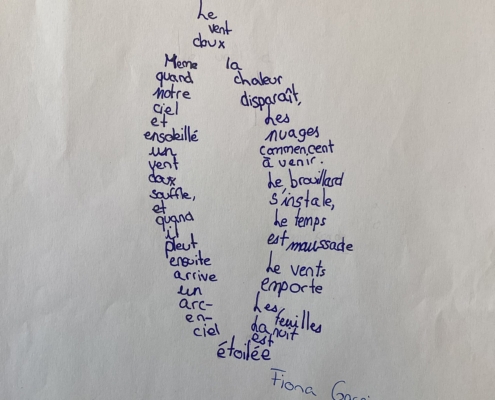 Le
vent
doux
Meme
quand
notre
ciel
et
ensoleillé
un
vent
doux
souffle,
et
quand
il
pleut
ensuite
arrive
un
arc-
en-
ciel
la
chaleur
disparaît,
Les
nuages
commencent
à venir.
Le brouillard
s'instale,
Le temps
est maussade
Le vents
emporte
Les
feuilles
La nuit
est
étoilée
Fiona